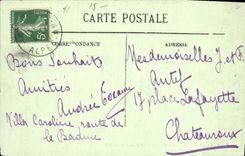 15-
CARTE POSTALE
CORRESPONDANCE
ADRESSE
Bons Souhaits
Amitiés
Andrée
Villa Caroline route de
la Badine
Mesdemoiselles J et
17 place Lafayette
Chateauroux